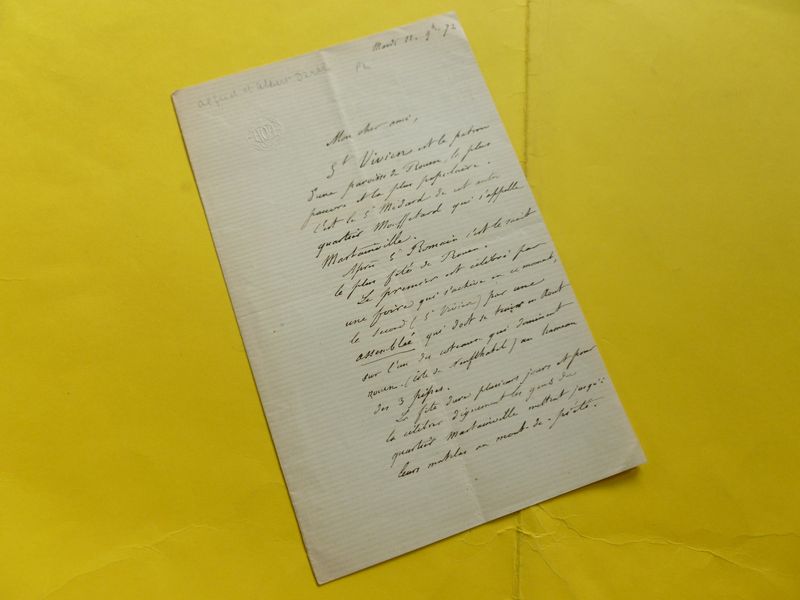 Mardi 9bre 72
Alfred et Albert Darcel
Mon cher ami,
St Vivien est le patron
d'une paroisse de Rouen, la plus
pauvre et la plus populaire.
C'est le St Médard de cet autre
quartier Mouffetard qui s'appelle
Martainville.
Après St Romain c'est le saint
le plus fêté de Rouen.
Le premier est célébré par
une foire qui s'achève en ce moment,
le second (St Vivien) par une
assemblée qui doit se tenir en haut
sur l'un des coteaux qui dominent
Rouen (côte de Neufchatel) au hameau
des 3 pipes.
La fête dure plusieurs jours et pour
la célébrer dignement les gens du
quartier Martainville mettent jusqu'à
leurs matelas au mont-de-piété.